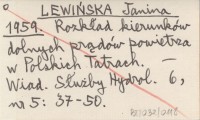 LEWIŃSKA Janina
1959. Rozkład kierunków
dolnych prądów powietrza
w Polskich Tatrach. —
Wiad. Służby Hydrol. 6,
nr 5: 37-50.